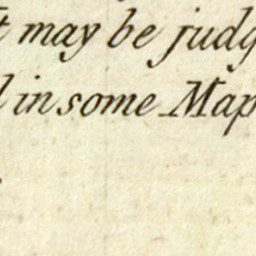 t may be judg
l in some Map